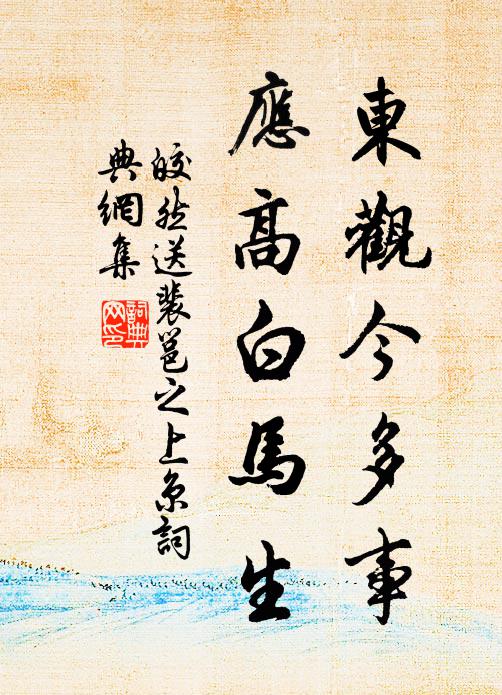 東觀今多事
應高白馬生
皎然送裴邕之上京詞
典網集
詞典网印